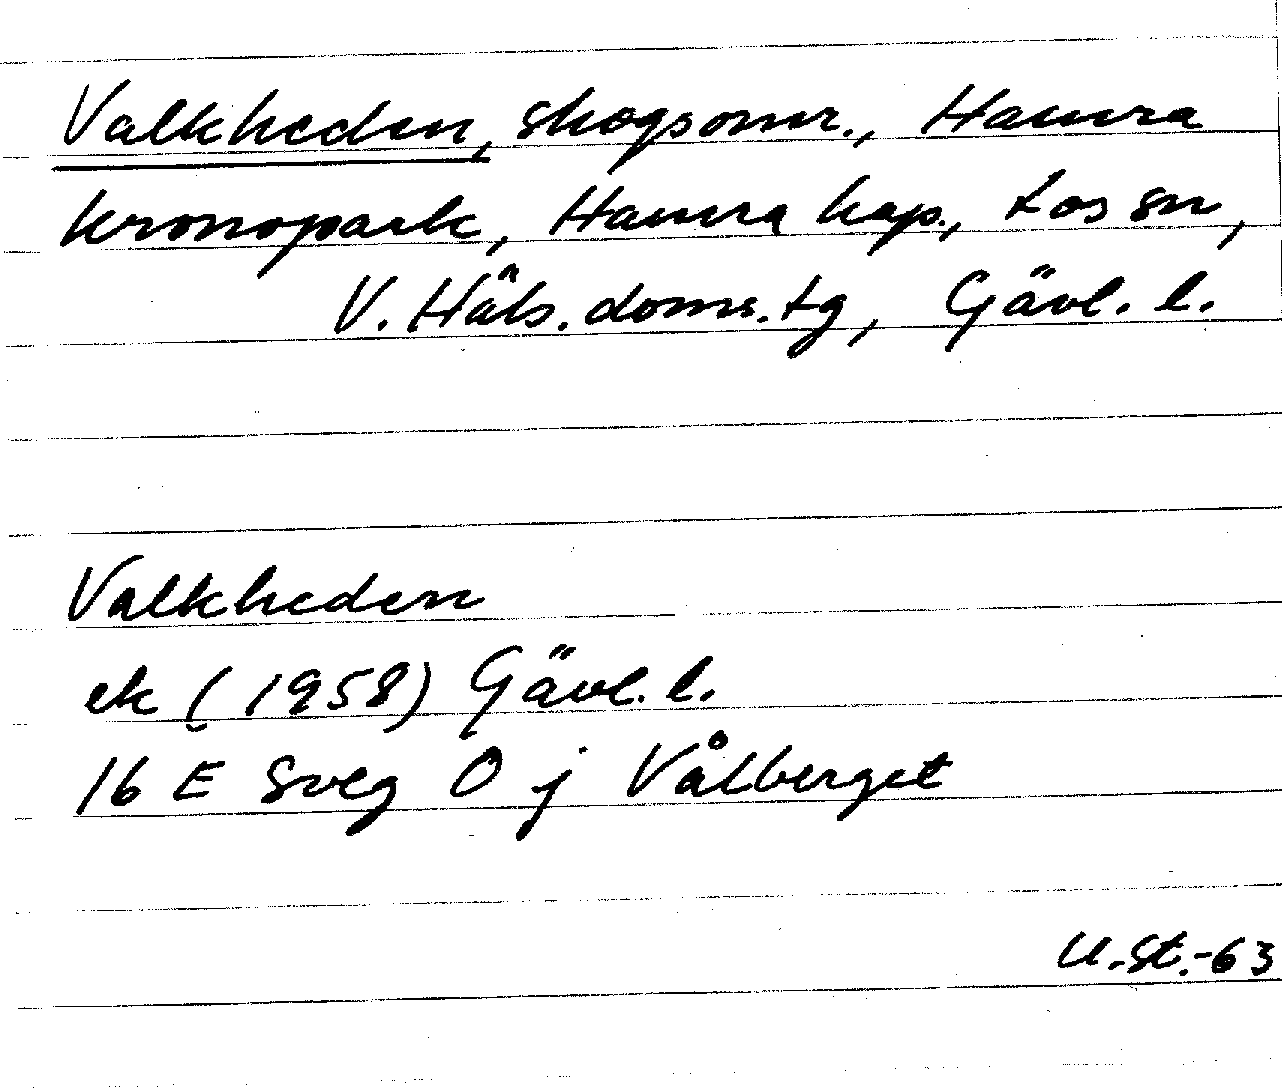 Valkheden, skogsomr., Hamra
kronopark, Hamra kap., Los sn,
V. Häls. doms. tg, Gävl. l.
Valkheden
ek (1958) Gävl. l.
16 E Sveg O j Vålberget
U.St.-63